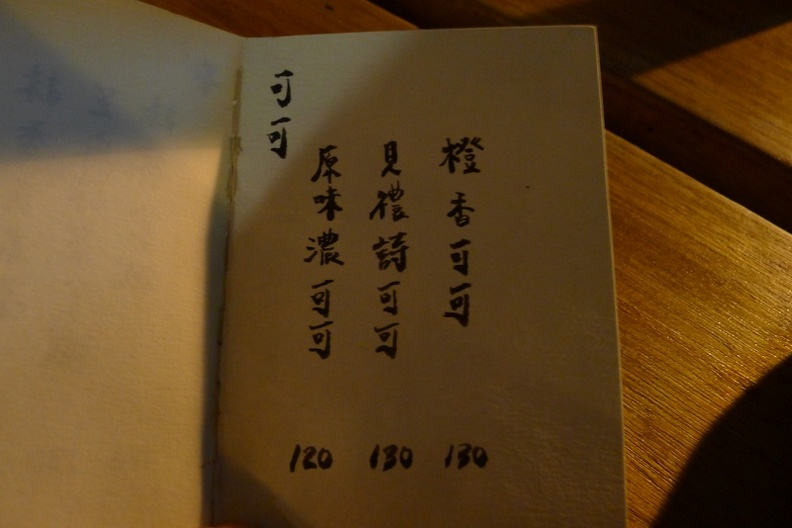 可可
原味濃可可 120
貝禮詩可可 130
橙香可可 130